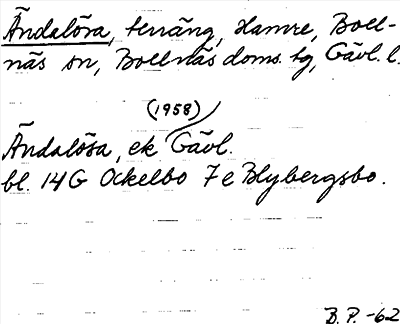 Ändalösa, terräng, Hamre, Boll-
näs sn, Bollnäs doms. tg, Gävl. l.
(1958)
Ändalösa, ek Gävl.
bl. 14G Ockelbo 7e Blybergsbo.
B.P.-62